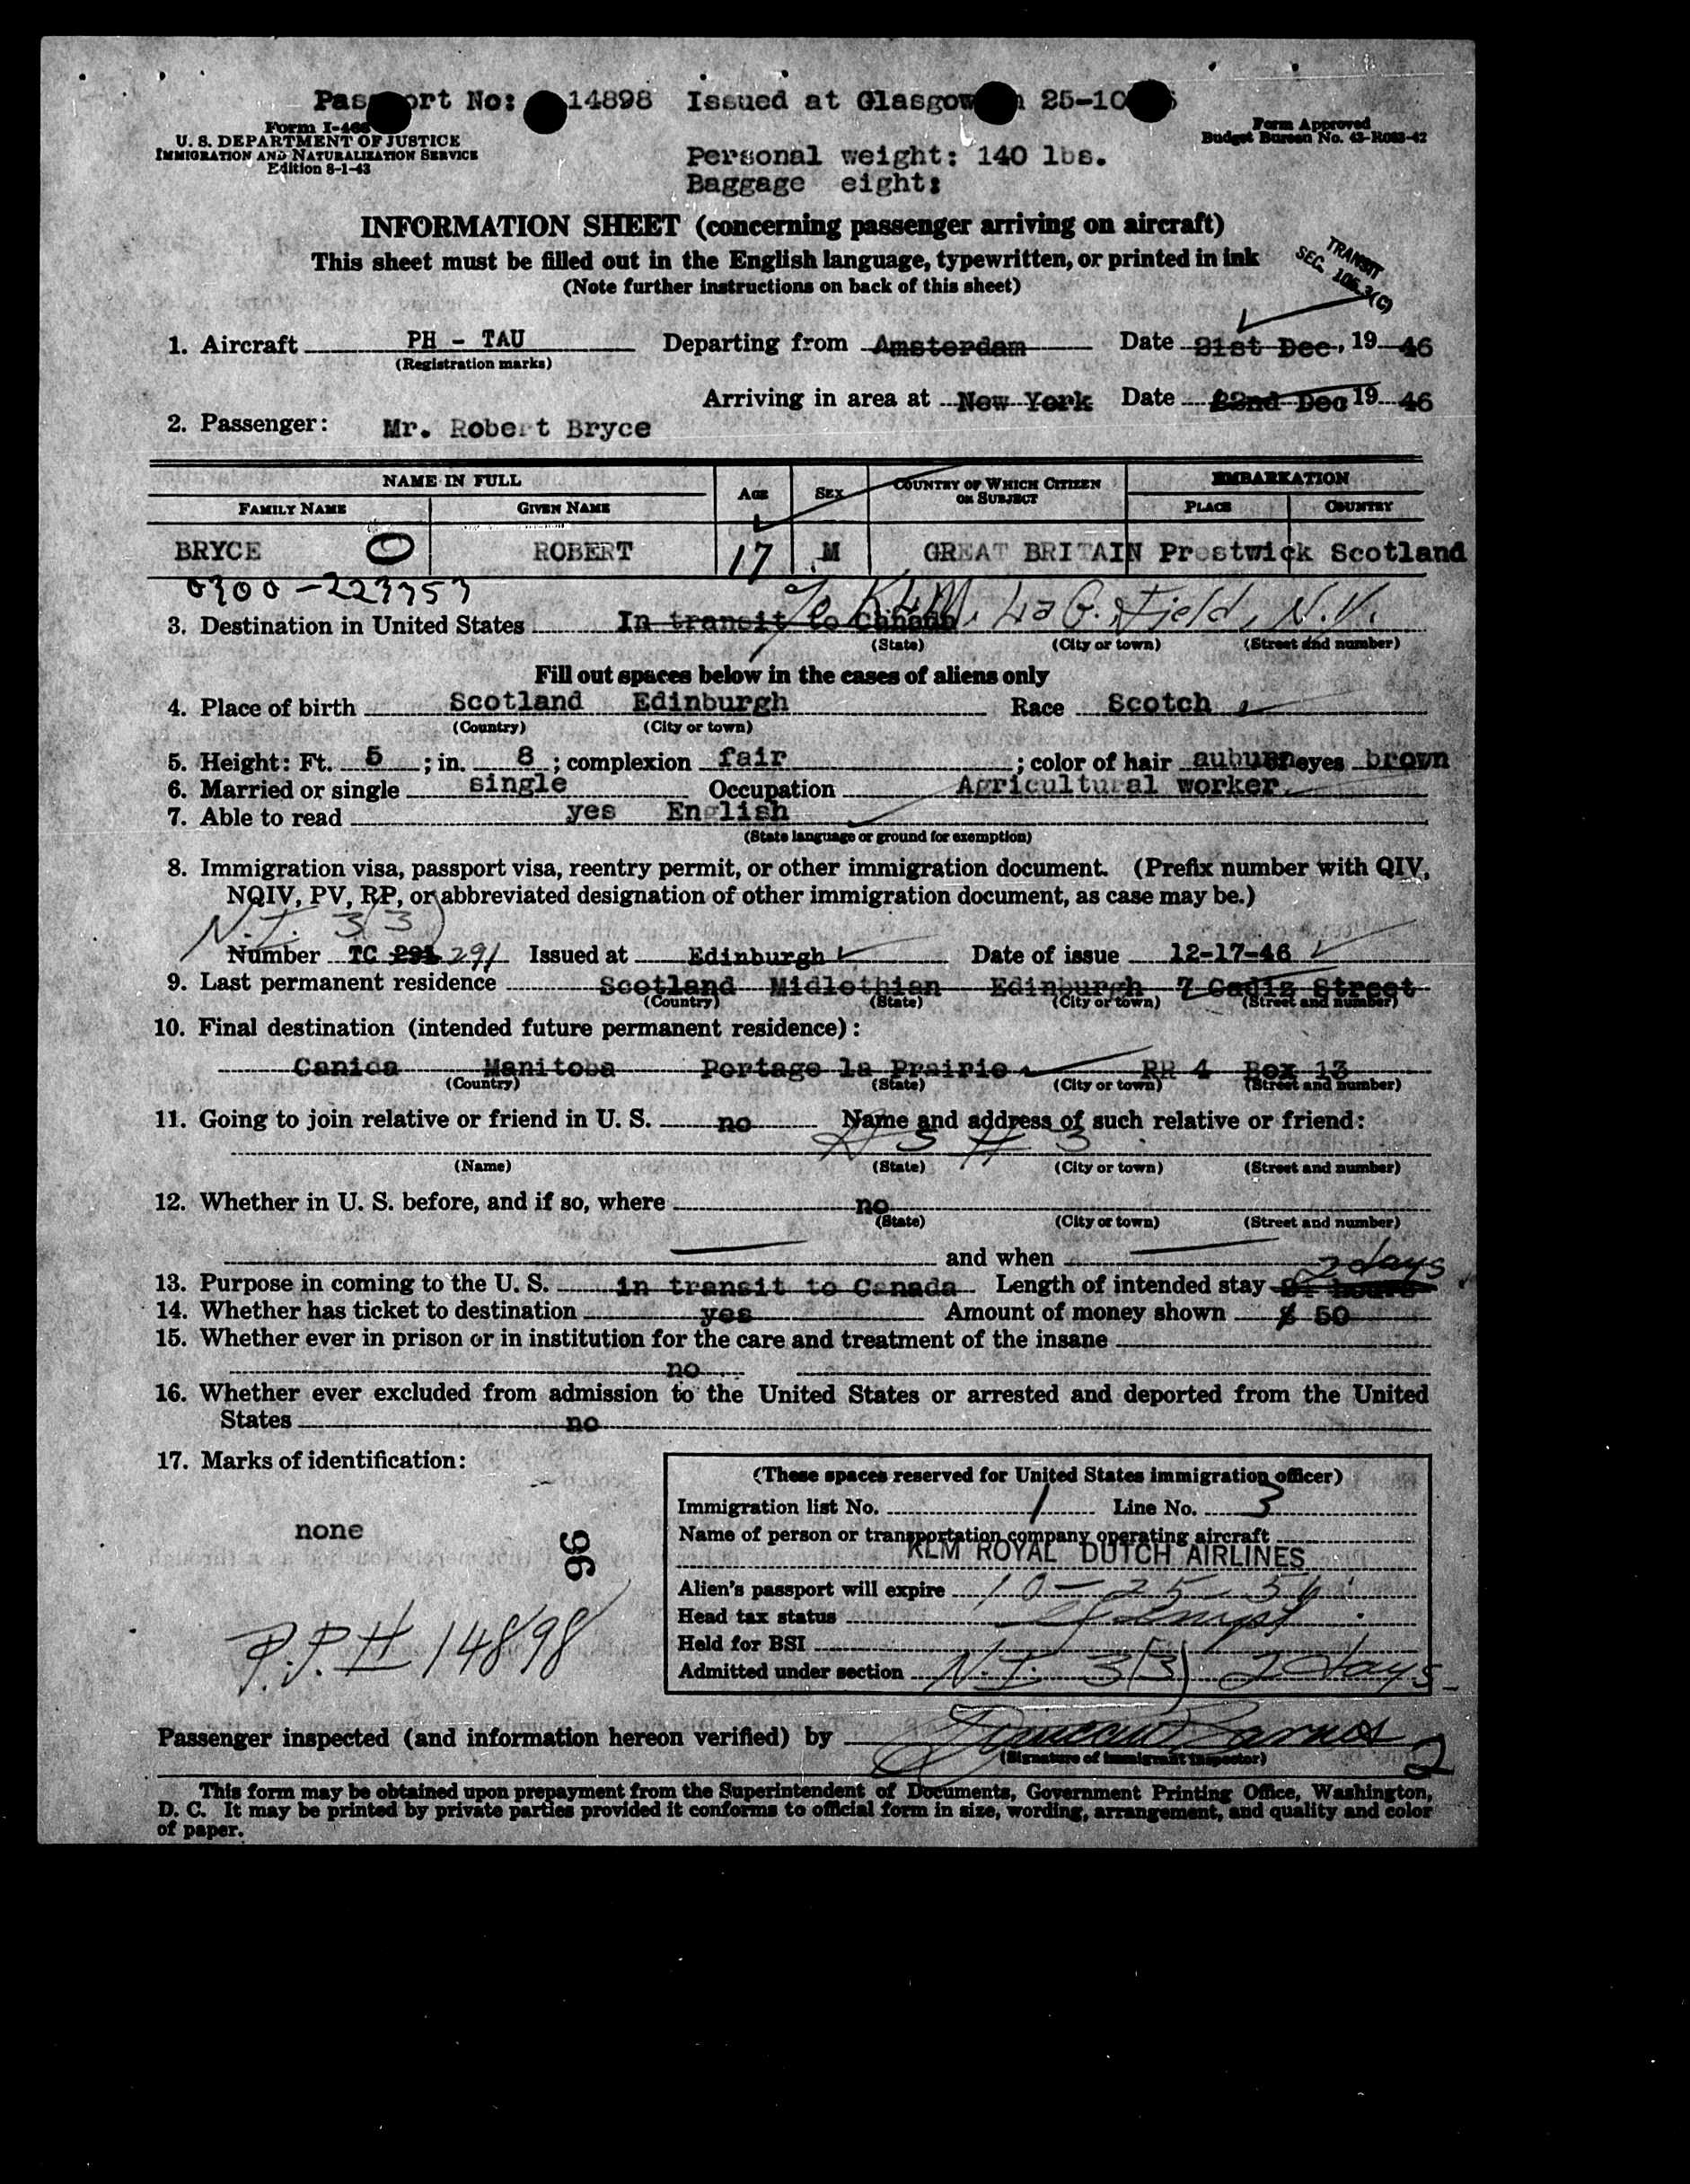 Passport No: 14898 Issued at Glasgow 25-10
Form I-466
U. S. DEPARTMENT OF JUSTICE
IMMIGRATION AND NATURALIZATION SERVICE
Edition 8-1-43
Form Approved
Budget Bureau No. 43-R083-42
Personal weight: 140 lbs.
Baggage eight:
INFORMATION SHEET (concerning passenger arriving on aircraft)
This sheet must be filled out in the English language, typewritten, or printed in ink
(Note further instructions on back of this sheet)
TRANSIT
SEC. 106.3(C)
1. Aircraft PH - TAU Departing from Amsterdam Date 21st Dec, 19 46
(Registration marks)
Arriving in area at New York Date 22nd Dec 19 46
2. Passenger: Mr. Robert Bryce
NAME IN FULL AGE SEX COUNTRY OF WHICH CITIZEN OR SUBJECT EMBARKATION
FAMILY NAME GIVEN NAME PLACE COUNTRY
BRYCE O ROBERT 17 M GREAT BRITAIN Prestwick Scotland
0300-223353
3. Destination in United States In transit to Canada % KLM. La G. Field, N.Y.
(State) (City or town) (Street and number)
Fill out spaces below in the cases of aliens only
4. Place of birth Scotland Edinburgh Race Scotch
(Country) (City or town)
5. Height: Ft. 5 ; in. 8 ; complexion fair ; color of hair auburn eyes brown
6. Married or single single Occupation Agricultural worker
7. Able to read yes English
(State language or ground for exemption)
8. Immigration visa, passport visa, reentry permit, or other immigration document. (Prefix number with QIV,
NQIV, PV, RP, or abbreviated designation of other immigration document, as case may be.)
N.I. 3(3)
Number TC 291 291 Issued at Edinburgh Date of issue 12-17-46
9. Last permanent residence Scotland Midlothian Edinburgh 7 Cadiz Street
(Country) (State) (City or town) (Street and number)
10. Final destination (intended future permanent residence):
Canida Manitoba Portage la Prairie RR 4 Box 13
(Country) (State) (City or town) (Street and number)
11. Going to join relative or friend in U. S. no Name and address of such relative or friend:
# 3
(Name) (State) (City or town) (Street and number)
12. Whether in U. S. before, and if so, where no
(State) (City or town) (Street and number)
and when
2 days
13. Purpose in coming to the U. S. in transit to Canada Length of intended stay
14. Whether has ticket to destination yes Amount of money shown $ 50
15. Whether ever in prison or in institution for the care and treatment of the insane
no
16. Whether ever excluded from admission to the United States or arrested and deported from the United
States no
17. Marks of identification:
none
96
P.P. # 14898
(These spaces reserved for United States immigration officer)
Immigration list No. 1 Line No. 3
Name of person or transportation company operating aircraft
KLM ROYAL DUTCH AIRLINES
Alien's passport will expire 10-25-56
Head tax status Exempt
Held for BSI
Admitted under section N.I. 3(3) 2 days
Passenger inspected (and information hereon verified) by
(Signature of Immigrant Inspector)
2
This form may be obtained upon prepayment from the Superintendent of Documents, Government Printing Office, Washington,
D. C. It may be printed by private parties provided it conforms to official form in size, wording, arrangement, and quality and color
of paper.